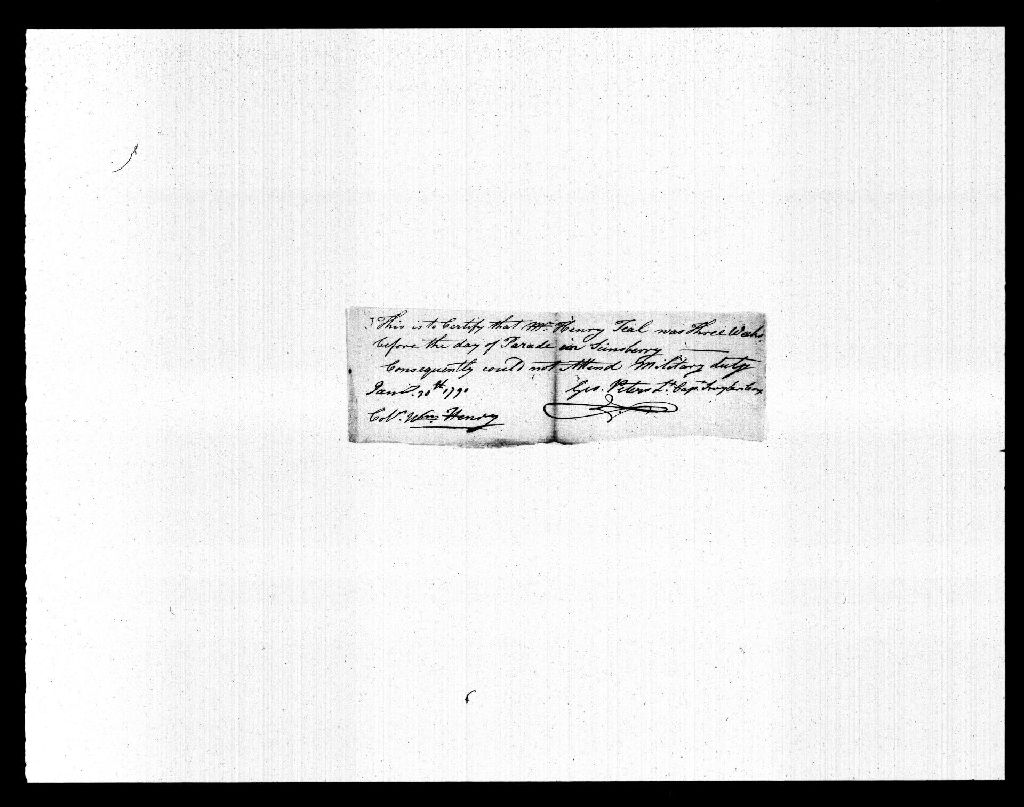 This is to Certify that Mr. Henry Teal was Three Weeks
before the day of Parade in
Consequently could not Attend Military duty
Jany. 20th 1791 Geo. Peters Capt.
Col. Wm. Henry